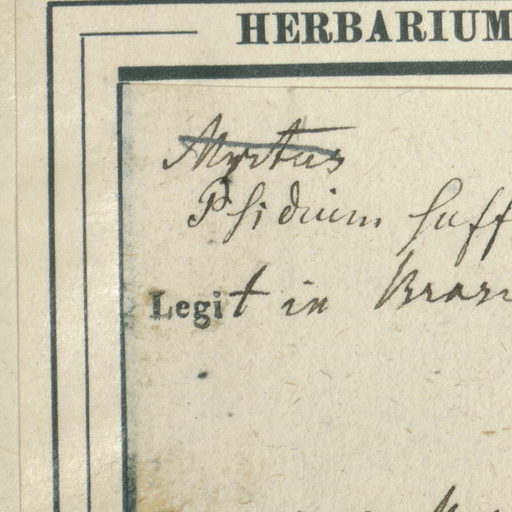 HERBARIUM
Myrtus
Psidium suff
Legit in Brasi